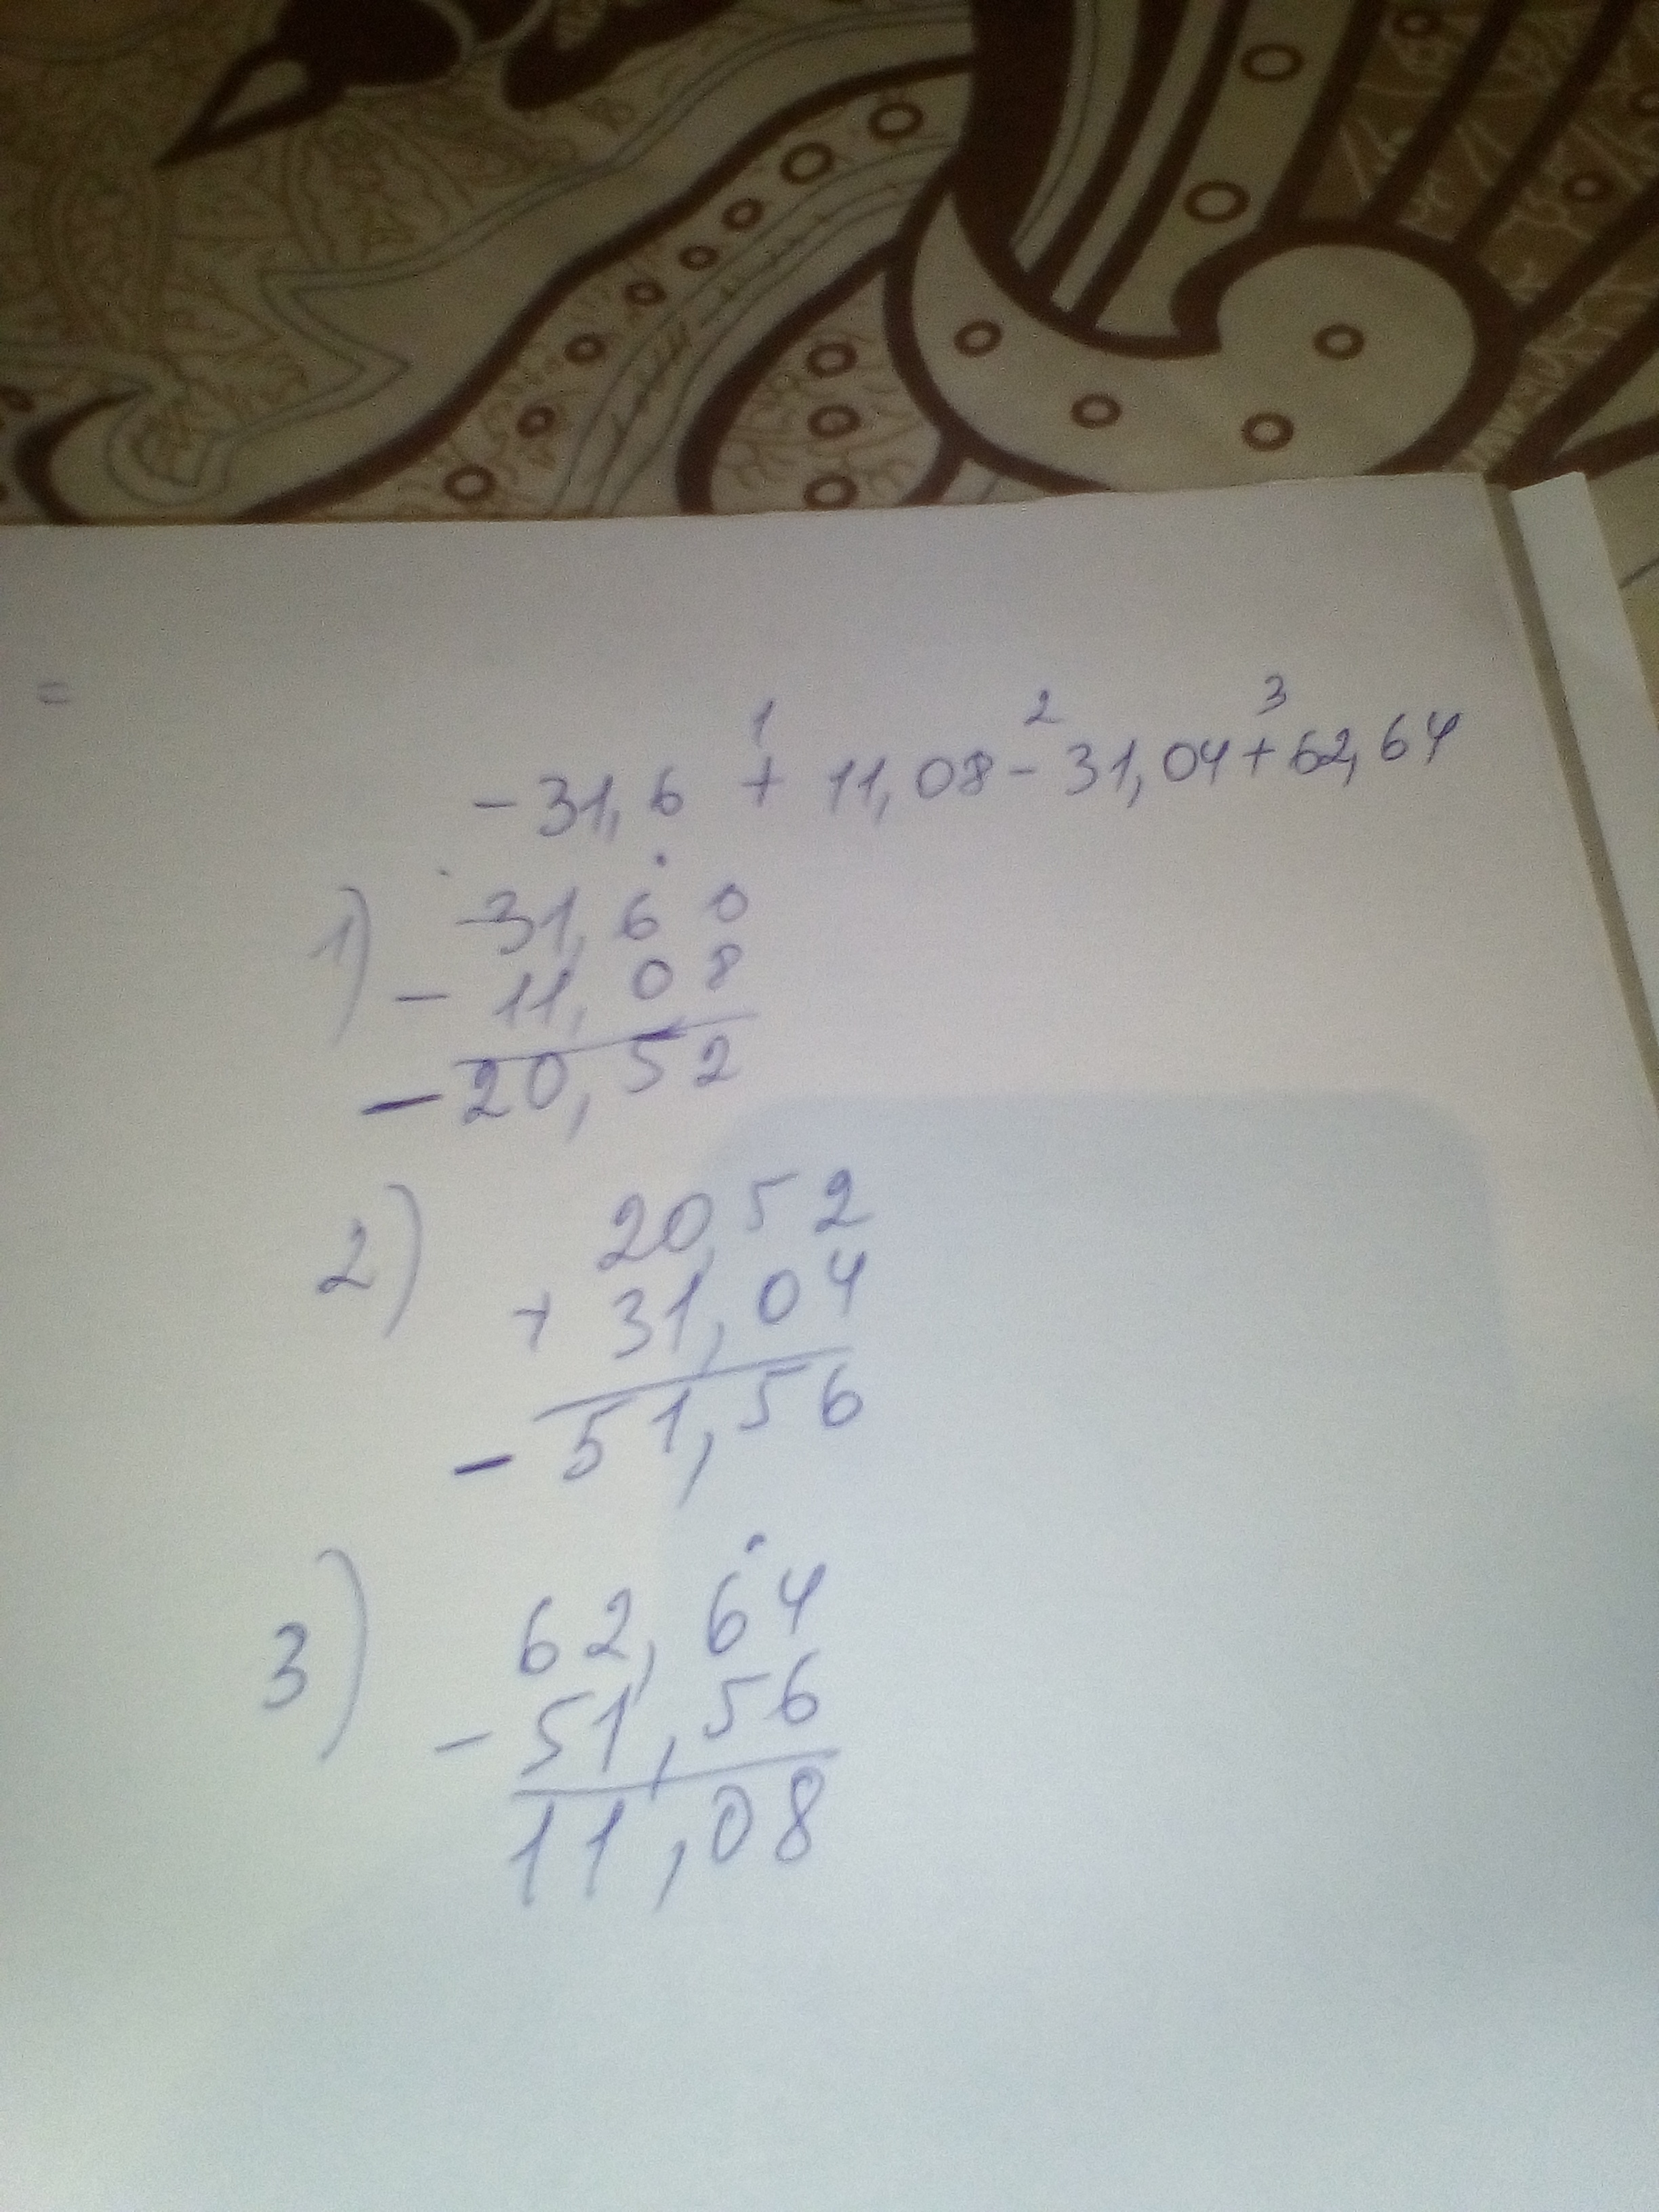 =
1 2 3
-31,6 + 11,08-31,04+62,64
1) 31,60
- 11,08
-20,52
2) 20,52
+ 31,04
- 51,56
3) 62,64
- 51,56
11,08